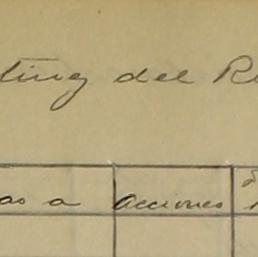 ting del R
as a acciones